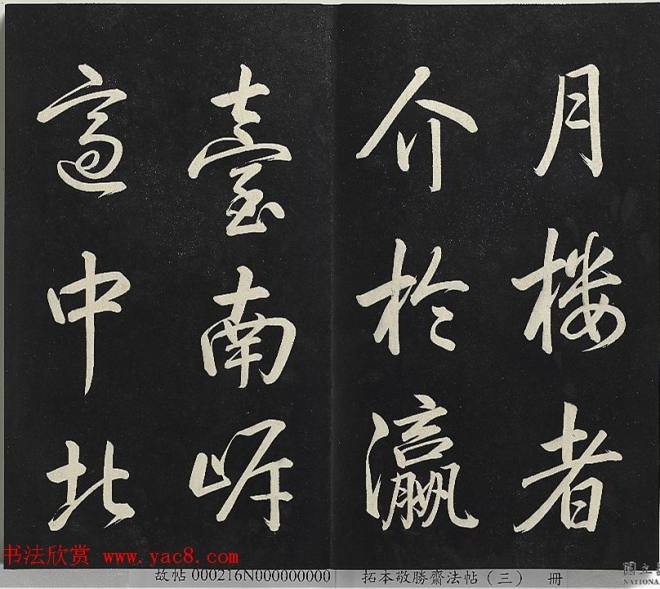 月樓者
介於瀛
臺南岸
適中北
书法欣赏 www.yac8.com
故帖 000216N000000000 拓本敬勝齋法帖（三） 冊
國立
NATIONA